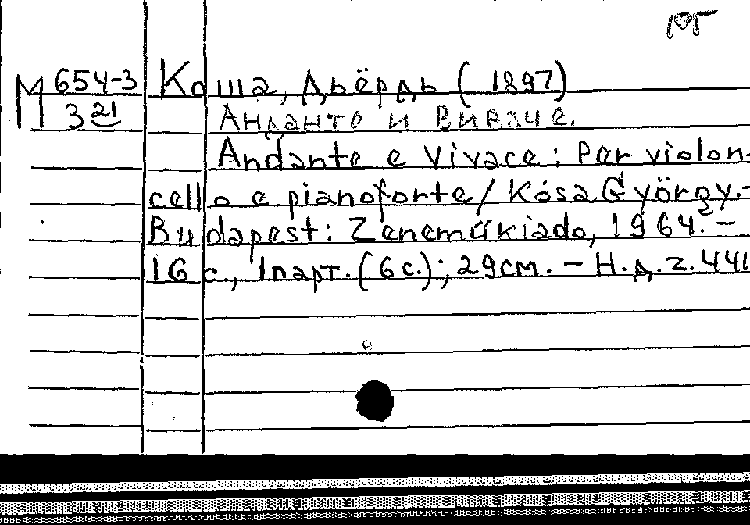 М 654-3 Коша, Дьёрдь (1897)
3 21 Анданте и Виваче.
Andante e Vivace: Per violon-
cello e pianoforte / Kósa György.-
Budapest: Zeneműkiado, 1964.-
16 с., 1парт.(6с.); 29см. - Н.д.Z.441